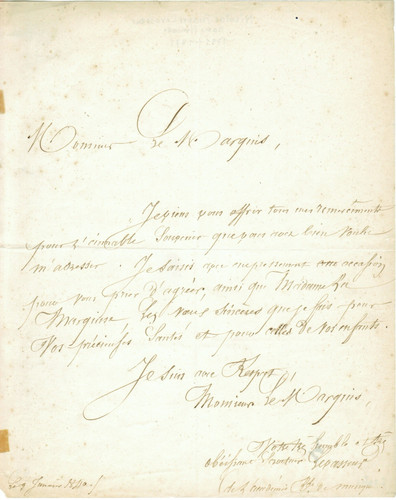 Monsieur Le Marquis,
Je viens vous offrir tous mes remerciements
pour l'aimable Souvenir que vous avez bien voulu
m'adresser. Je saisis avec empressement cette occasion
pour vous prier d'agréer, ainsi que Madame La
Marquise les vœux sincères que je fais pour
Vos précieuses Santés et pour celles de Vos enfants.
Je suis avec Respect,
Monsieur Le Marquis,
Votre très humble et très
obéissant Serviteur
Le 9 Janvier 1840.